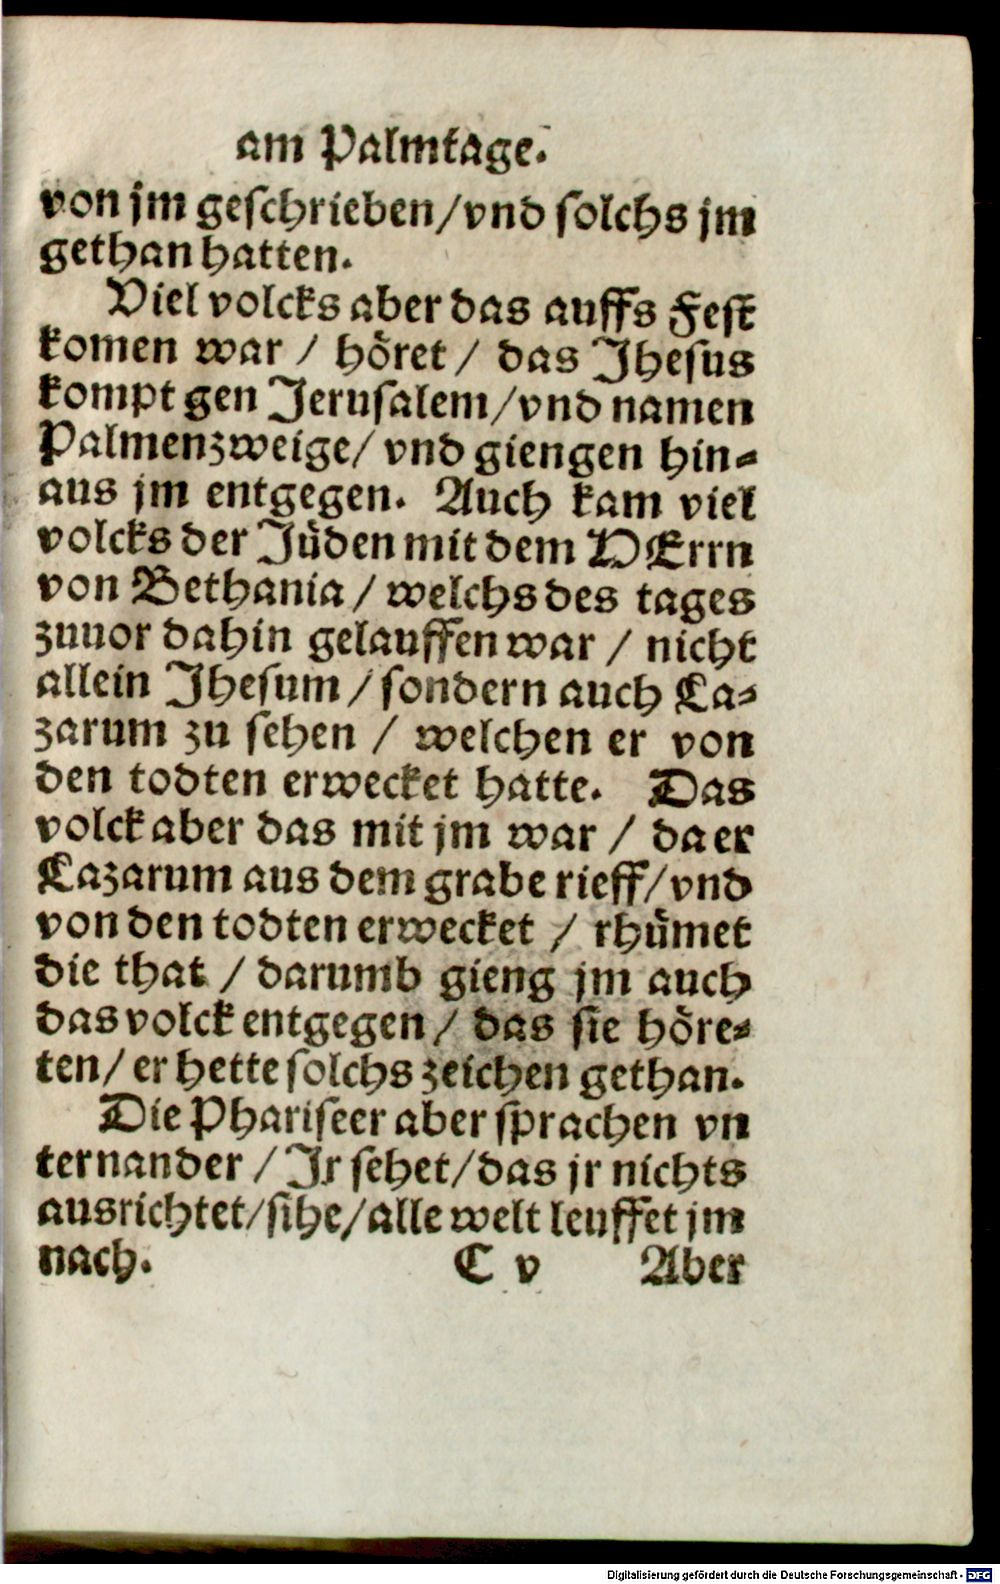 am Palmtage.
von jm geschrieben/vnd solchs jm
gethan hatten.
Viel volcks aber das auffs Fest
komen war / höret / das Jhesus
kompt gen Jerusalem/vnd namen
Palmenzweige/ vnd giengen hin-
aus jm entgegen. Auch kam viel
volcks der Jüden mit dem HErrn
von Bethania / welchs des tages
zuuor dahin gelauffen war / nicht
allein Jhesum / sondern auch La-
zarum zu sehen / welchen er von
den todten erwecket hatte. Das
volck aber das mit jm war / da er
Lazarum aus dem grabe rieff/vnd
von den todten erwecket / rhümet
die that / darumb gieng jm auch
das volck entgegen / das sie höre-
ten/ er hette solchs zeichen gethan.
Die Phariseer aber sprachen vn
ternander / Jr sehet/das jr nichts
ausrichtet/sihe/alle welt leuffet jm
nach. C v Aber
Digitalisierung gefördert durch die Deutsche Forschungsgemeinschaft - DFG